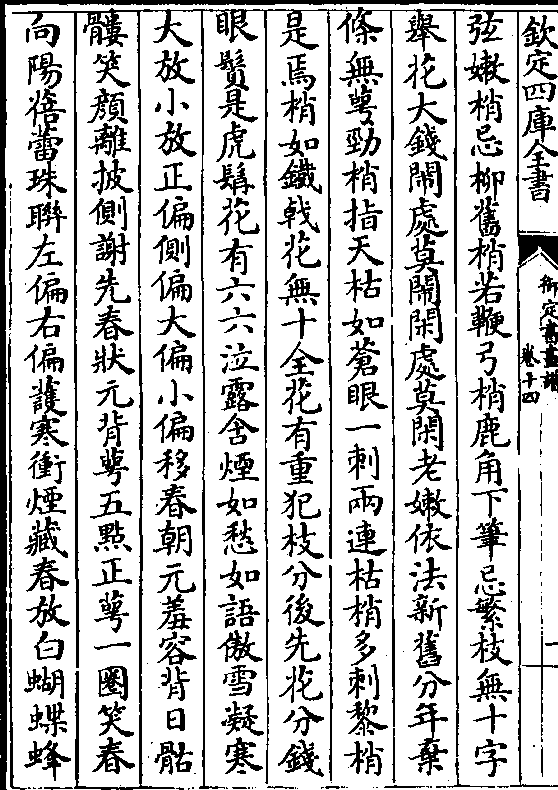 欽定四庫全書
御定書畫譜
卷十四
弦嫩梢忌柳舊梢若鞭弓梢鹿角下筆忌繁枝無十字
舉花大錢鬧處莫鬧閑處莫閑老嫩依法新舊分年棄
條無萼勁梢指天枯如蒼眼一刺兩連枯梢多刺黎梢
是焉梢如鐵戟花無十全花有重犯枝分後先花分錢
眼鬚是虎鬍花有六六泣露含煙如愁如語傲雪凝寒
大放小放正偏側偏大偏小偏移春朝元羞容背日骷
髏笑顏離披側謝先春狀元背萼五點正萼一圈笑春
向陽蓓蕾珠聯左偏右偏護寒衝煙藏春放白蝴蝶蜂